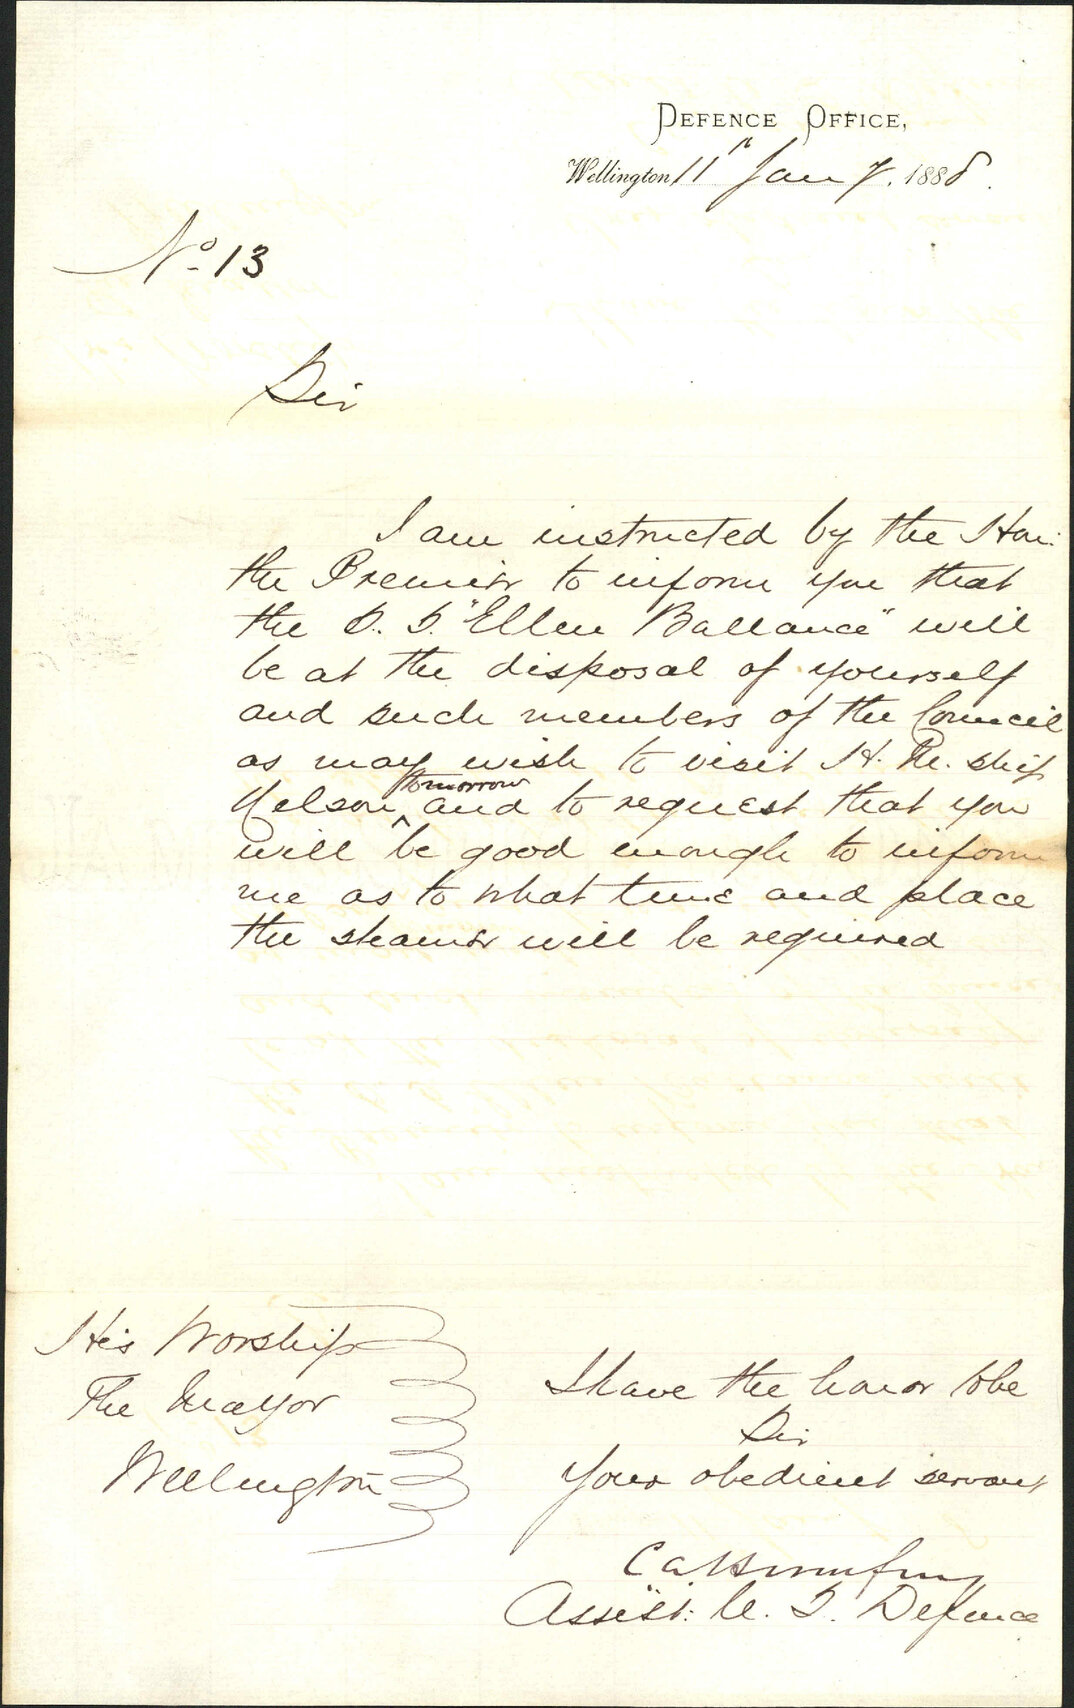 DEFENCE OFFICE,
Wellington 11th Jany. 1888.
No. 13
Sir
I am instructed by the Hon:
the Premier to inform you that
the S. S. "Ellen Ballance" will
be at the disposal of yourself
and such members of the Council
as may wish to visit H. M. ship
Nelson ^tomorrow and to request that you
will be good enough to inform
me as to what time and place
the steamer will be required
His Worship
The Mayor
Wellington
I have the honor to be
Sir
Your obedient servant
Assist: U. S. Defence